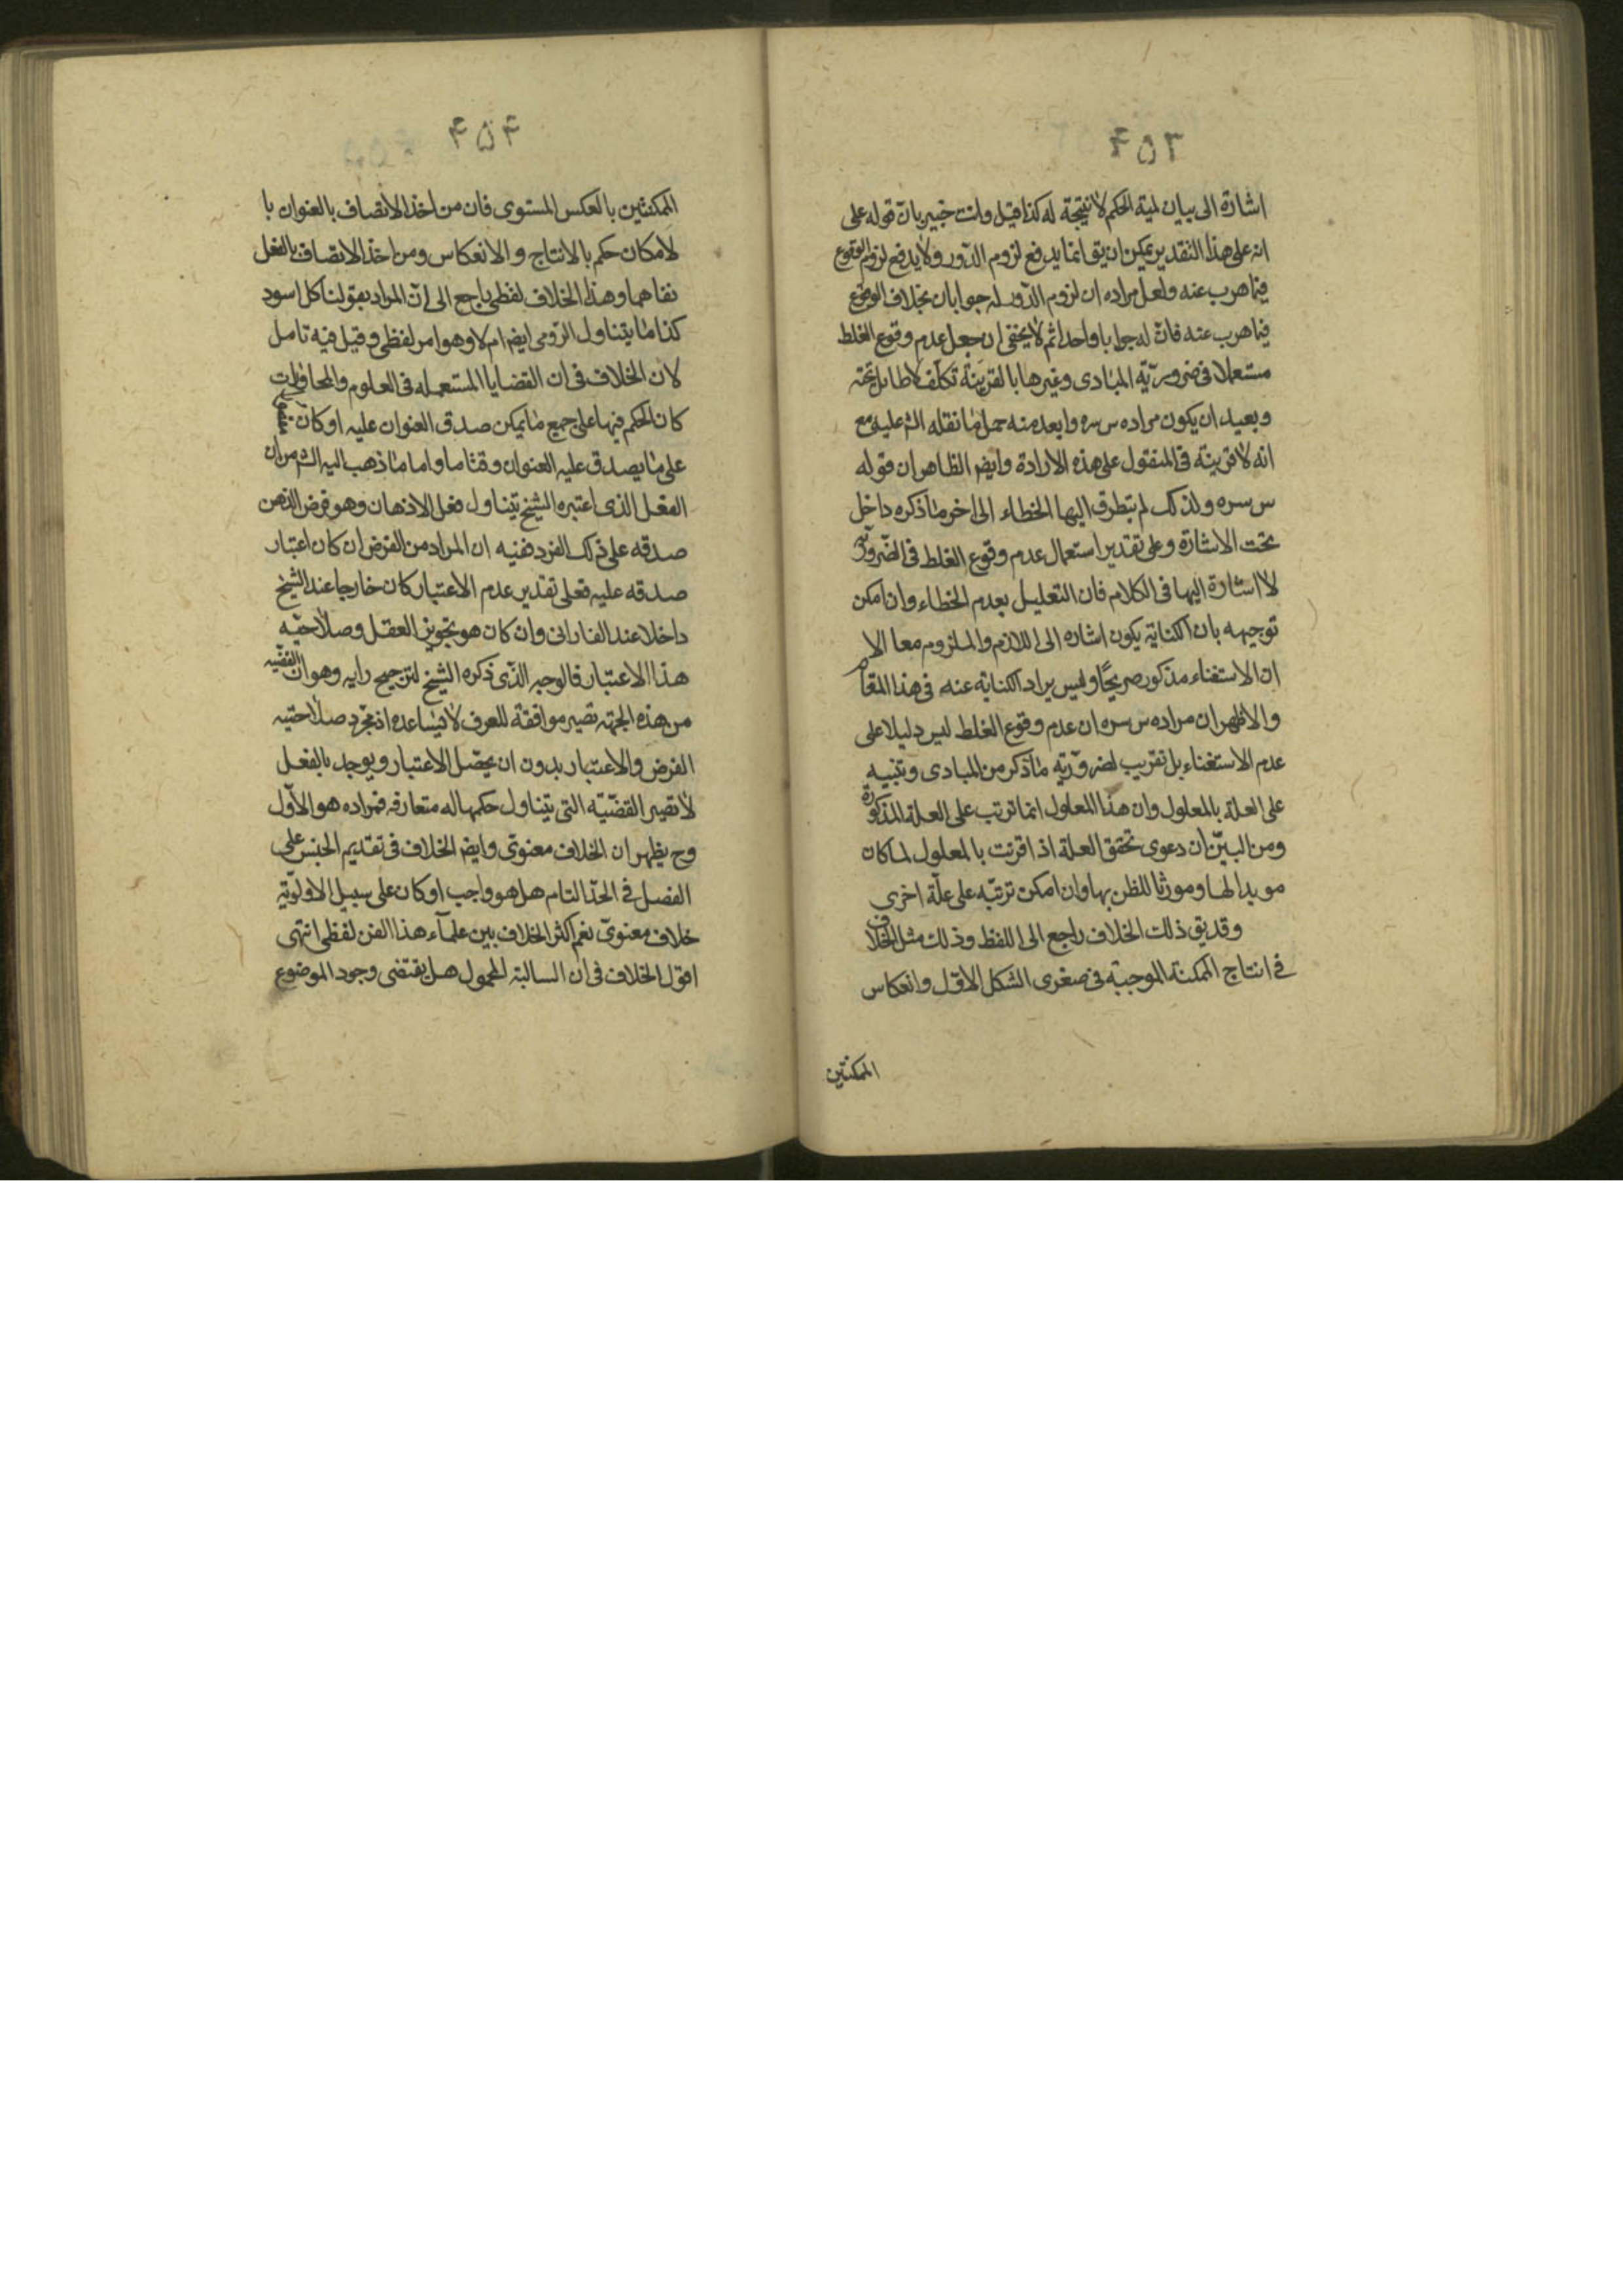 ۴۵۳
اشارة الى بيان لمية الحكم لا نتيجة له كذا قيل وانت خبير بان قوله على
انه على هذا التقدير يمكن ان يق انما يدفع لزوم الدور ولا يدفع لزوم الوقوع
فيما هرب عنه ولعل مراده ان لزوم الدور له جوابان بخلاف الوقوع
فيما هرب عنه فان له جوابا واحدا ثم لا يخفى ان جعل عدم وقوع الغلط
مستعملا فى ضرورية المبادى وغيرها بالقرينة تكلف لا طايل تحته
وبعيد ان يكون مراده س سره وابعد منه حمل ما نقله الش عليه مع
انه لا قرينة فى المنقول على هذه الارادة وايضم الظاهر ان قوله
س سره ولذلك لم يتطرق اليها الخطاء الى اخر ما ذكره داخل
تحت الاشارة وعلى تقدير استعمال عدم وقوع الغلط فى الضرورية
لا اشارة اليها فى الكلام فان التعليل بعدم الخطاء وان امكن
توجيهه بان الكناية يكون اشاره الى اللازم والملزوم معا الا
ان الاستغناء مذكور صريحًا وليس يراد الكناية عنه فى هذا المقام
والاظهر ان مراده س سره ان عدم وقوع الغلط ليس دليلا على
عدم الاستغناء بل تقريب لضرورية ما ذكر من المبادى وتنبيه
على العلة بالمعلول وان هذا المعلول انما ترتب على العلة المذكورة
ومن البيّن ان دعوى تحقق العلة اذا قرنت بالمعلول لما كان
مويدا لها ومورثا للظن بها وان امكن ترتبه على علّة اخرى
وقد يق ذلك الخلاف راجع الى اللفظ وذلك مثل الخلاف
فى انتاج الممكنة الموجبة فى صغرى الشكل الاول وانعكاس
الممكنتين
۴۵۴
الممكنتين بالعكس المستوى فان من اخذ الاتصاف بالعنوان با
لامكان حكم بالانتاج والانعكاس ومن اخذ الاتصاف بالفعل
نفاهما وهذا الخلاف لفظى راجع الى ان المراد بقولنا كل اسود
كذا ما يتناول الرومى ايضم ام لا وهو امر لفظى وقيل فيه تامل
لان الخلاف فى ان القضايا المستعمله فى العلوم والمحاورات
كان الحكم فيها على جميع ما يمكن صدق العنوان عليه او كان
على ما يصدق عليه العنوان وقتا ما واما ما ذهب اليه الش من ان
الفعل الذى اعتبره الشيخ يتناول فعل الاذهان وهو فرض الذهن
صدقه على ذلك الفرد ففيه ان المراد من الفرض ان كان اعتبار
صدقه عليه فعلى تقدير عدم الاعتبار كان خارجا عند الشيخ
داخلا عند الفارابى وان كان هو تجويز العقل وصلاحيه
هذا الاعتبار فالوجه الذى ذكره الشيخ لترجيح رايه وهو ان القضيه
من هذه الجهة تصير موافقة للعرف لا يساعده اذ مجرد صلاحيته
الفرض والاعتبار بدون ان يحصل الاعتبار ويوجد بالفعل
لا تصير القضيّه التى يتناول حكمها له متعارفه فمراده هو الاوّل
وح يظهر ان الخلاف معنوى وايضم الخلاف فى تقديم الجنس على
الفصل فى الحدّ التام هل هو واجب او كان على سبيل الاولويّة
خلاف معنوىّ نعم اكثر الخلاف بين علمآء هذا الفن لفظى انتهى
اقول الخلاف فى ان السالبة المحمول هل يقتضى وجود الموضوع